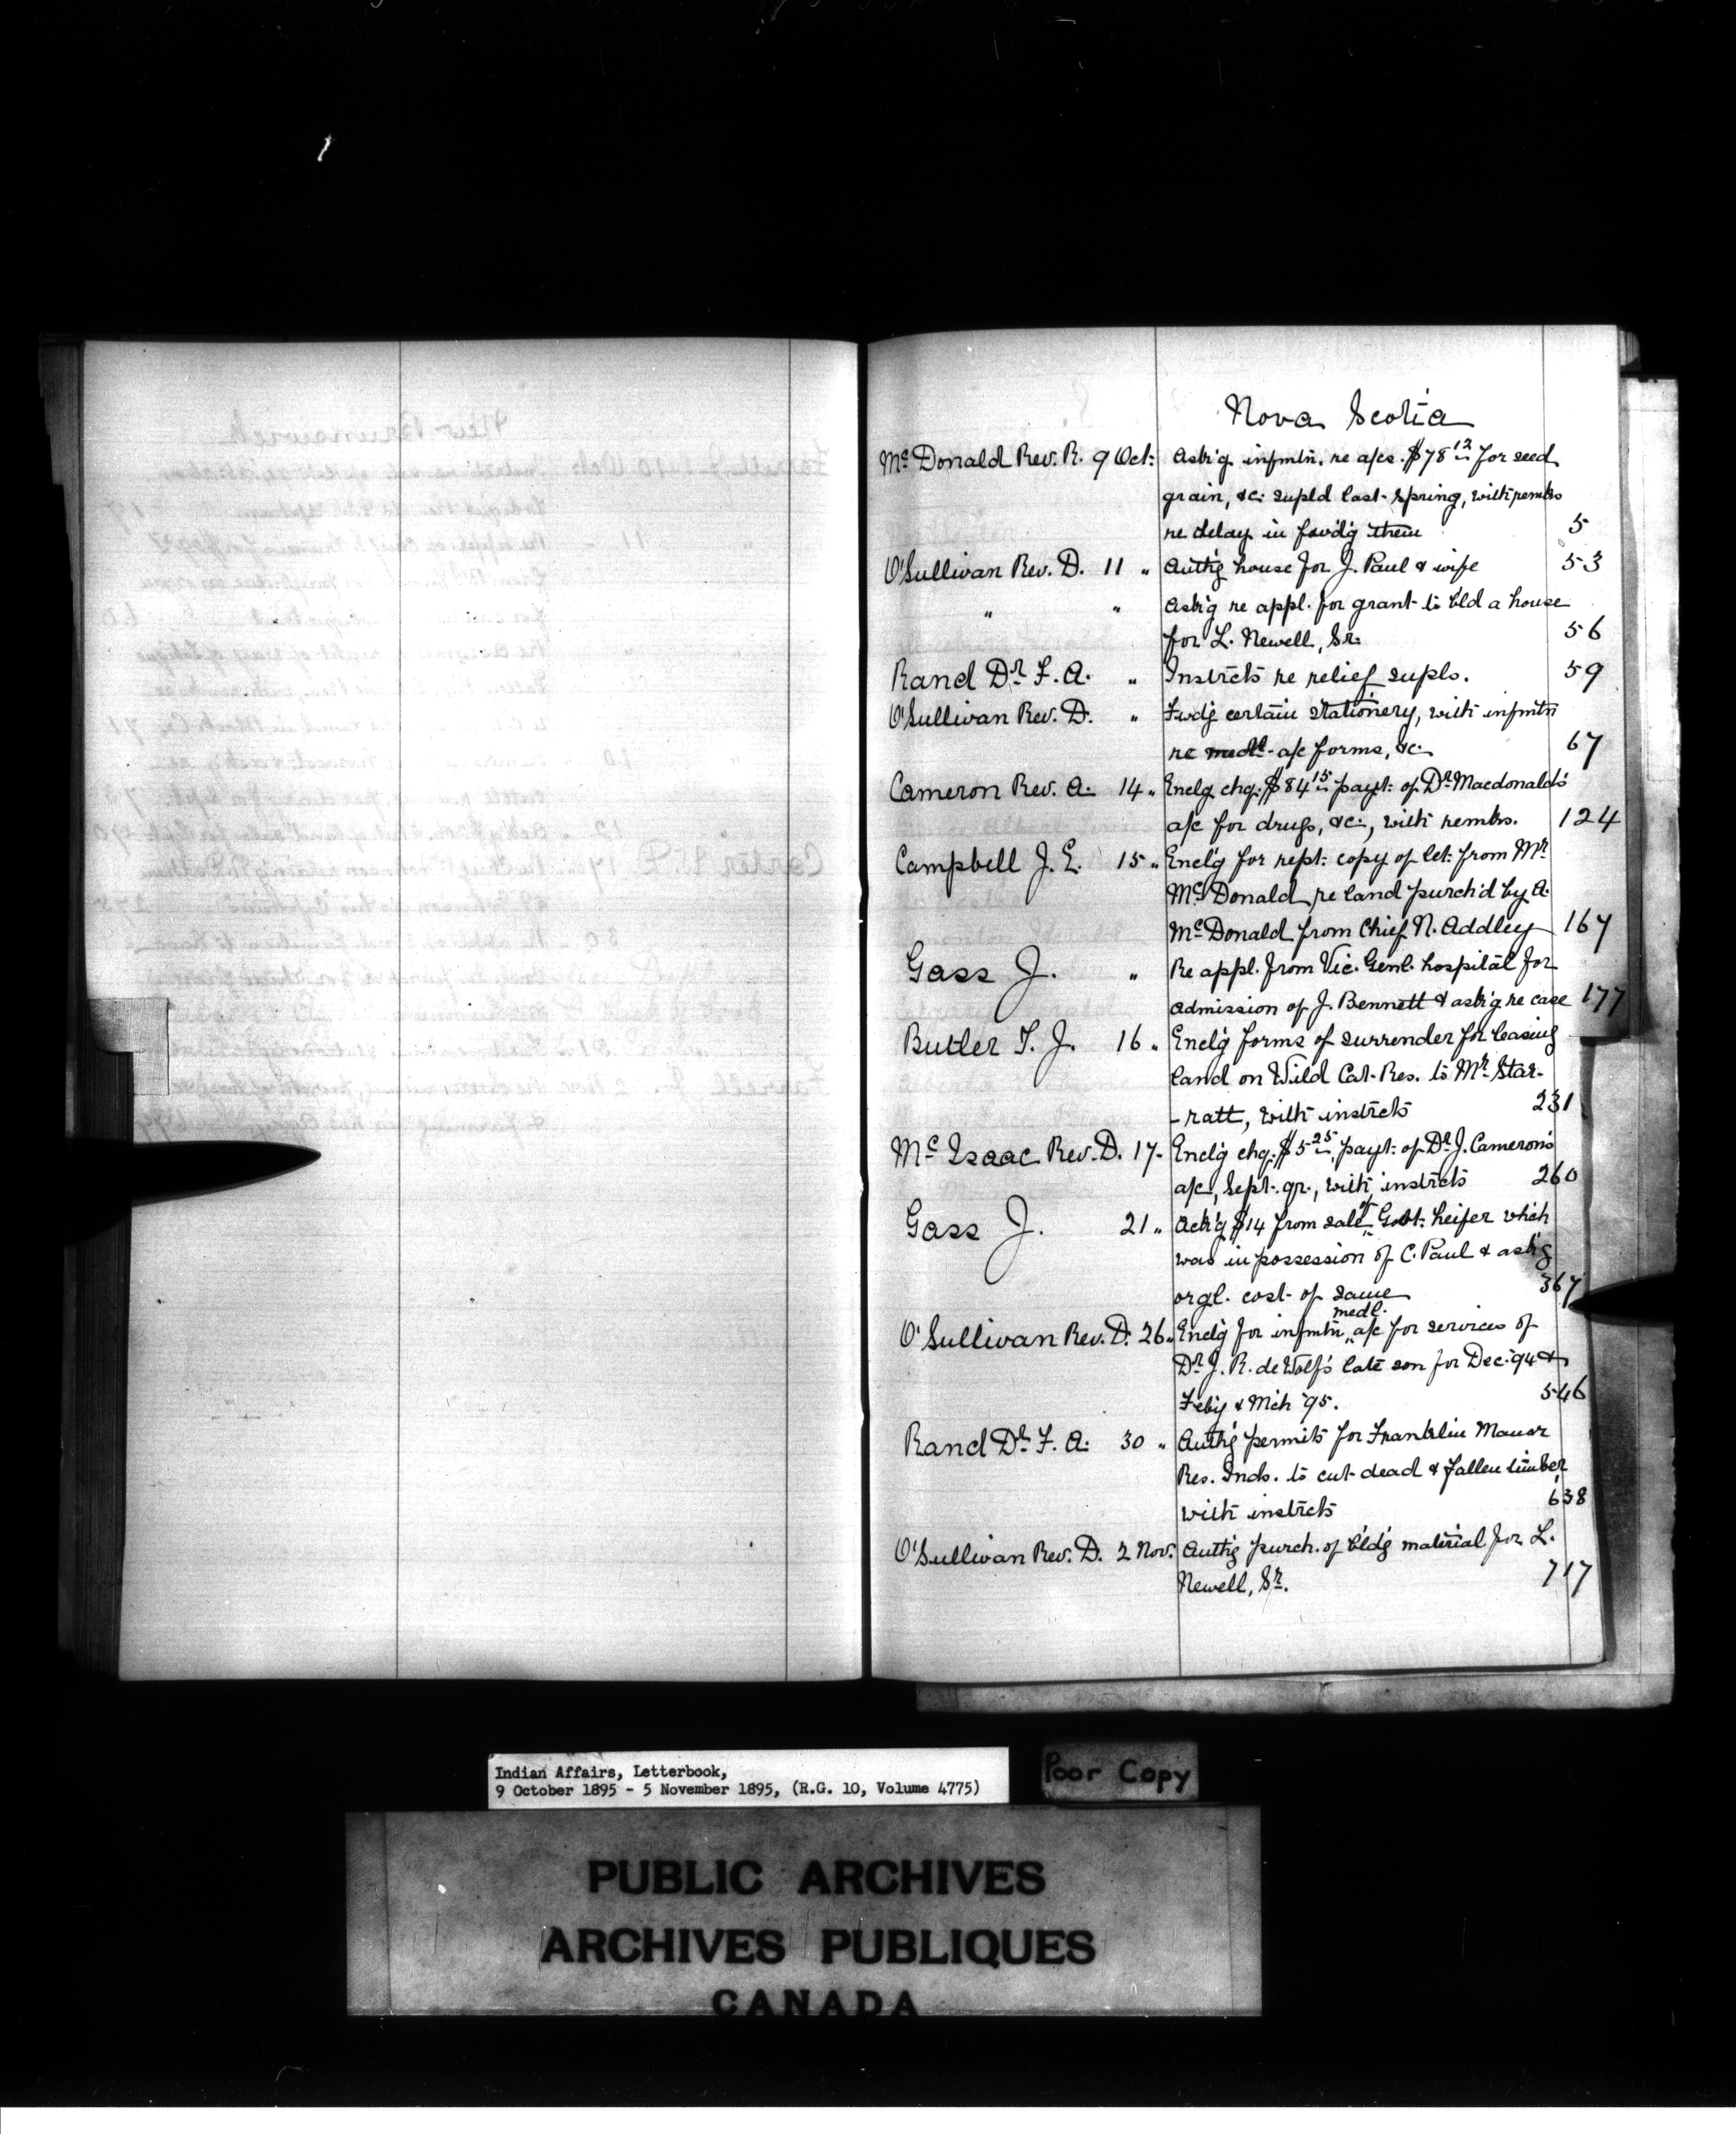 Nova Scotia
McDonald Rev. R. 9 Oct. Ask'g infmtn. re a/cs. $78 12 for seed
grain, &c. supld last spring, with remks
re delay in fowd'g them 5
O'Sullivan Rev. D. 11 " Auth'g house for J. Paul & wife 53
" " Ask'g re appl. for grant to bld a house
for L. Newell, Sr. 56
Rand Dr F. A. " Instrcts re relief supls. 59
O'Sullivan Rev. D. " Fwd'g certain stationery, with infmtn
re medl. a/c forms, &c. 67
Cameron Rev. A. 14 " Encl'g chq. $84 15 payt. of Dr Macdonald's
a/c for drugs, &c., with remks. 124
Campbell J. E. 15 " Encl'g for rept. copy of let. from Mr
McDonald re land purch'd by A.
McDonald from Chief N. Addley 167
Gass J. " Re appl. from Vic. Genl. hospital for
admission of J. Bennett & ask'g re case 177
Butler T. J. 16 " Encl'g forms of surrender for leasing
land on Wild Cat Res. to Mr Star-
-ratt, with instrcts 231
McIsaac Rev. D. 17 " Encl'g chq. $5 25, payt. of Dr J. Cameron's
a/c, Sept. qr., with instrcts 260
Gass J. 21 " Ack'g $14 from sale of Govt. heifer which
was in possession of C. Paul & ask'g
orgl. cost of same 367
O'Sullivan Rev. D. 26 " Encl'g for infmtn medl. a/c for services of
Dr J. R. deWolf's late son for Dec. '94 &
Feb'y & Mch '95. 546
Rand Dr F. A. 30 " Auth'g permits for Franklin Manor
Res. Inds. to cut dead & fallen timber
with instrcts 638
O'Sullivan Rev. D. 2 Nov. Auth'g purch. of bld'g material for L.
Newell, Sr. 717
Indian Affairs, Letterbook,
9 October 1895 - 5 November 1895, (R.G. 10, Volume 4775)
Poor Copy
PUBLIC ARCHIVES
ARCHIVES PUBLIQUES
CANADA